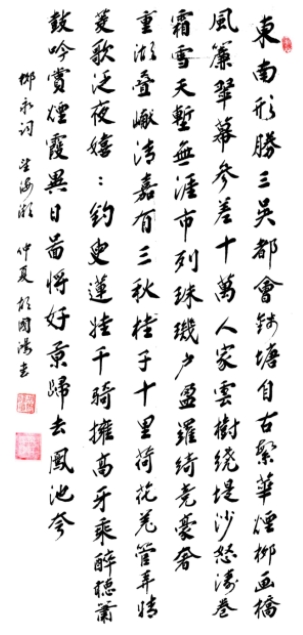 東南形勝三吳都會錢塘自古繁華煙柳画橋
風簾翠幕參差十萬人家雲樹繞堤沙怒濤卷
霜雪天塹無涯市列珠璣户盈羅綺竞豪奢
重湖叠巘清嘉有三秋桂子十里荷花羌管弄情
菱歌泛夜嬉：釣叟蓮娃千騎擁高牙乘醉聽蕭
鼓吟賞煙霞異日图將好景歸去鳳池夸
柳永词 望海潮 仲夏 於